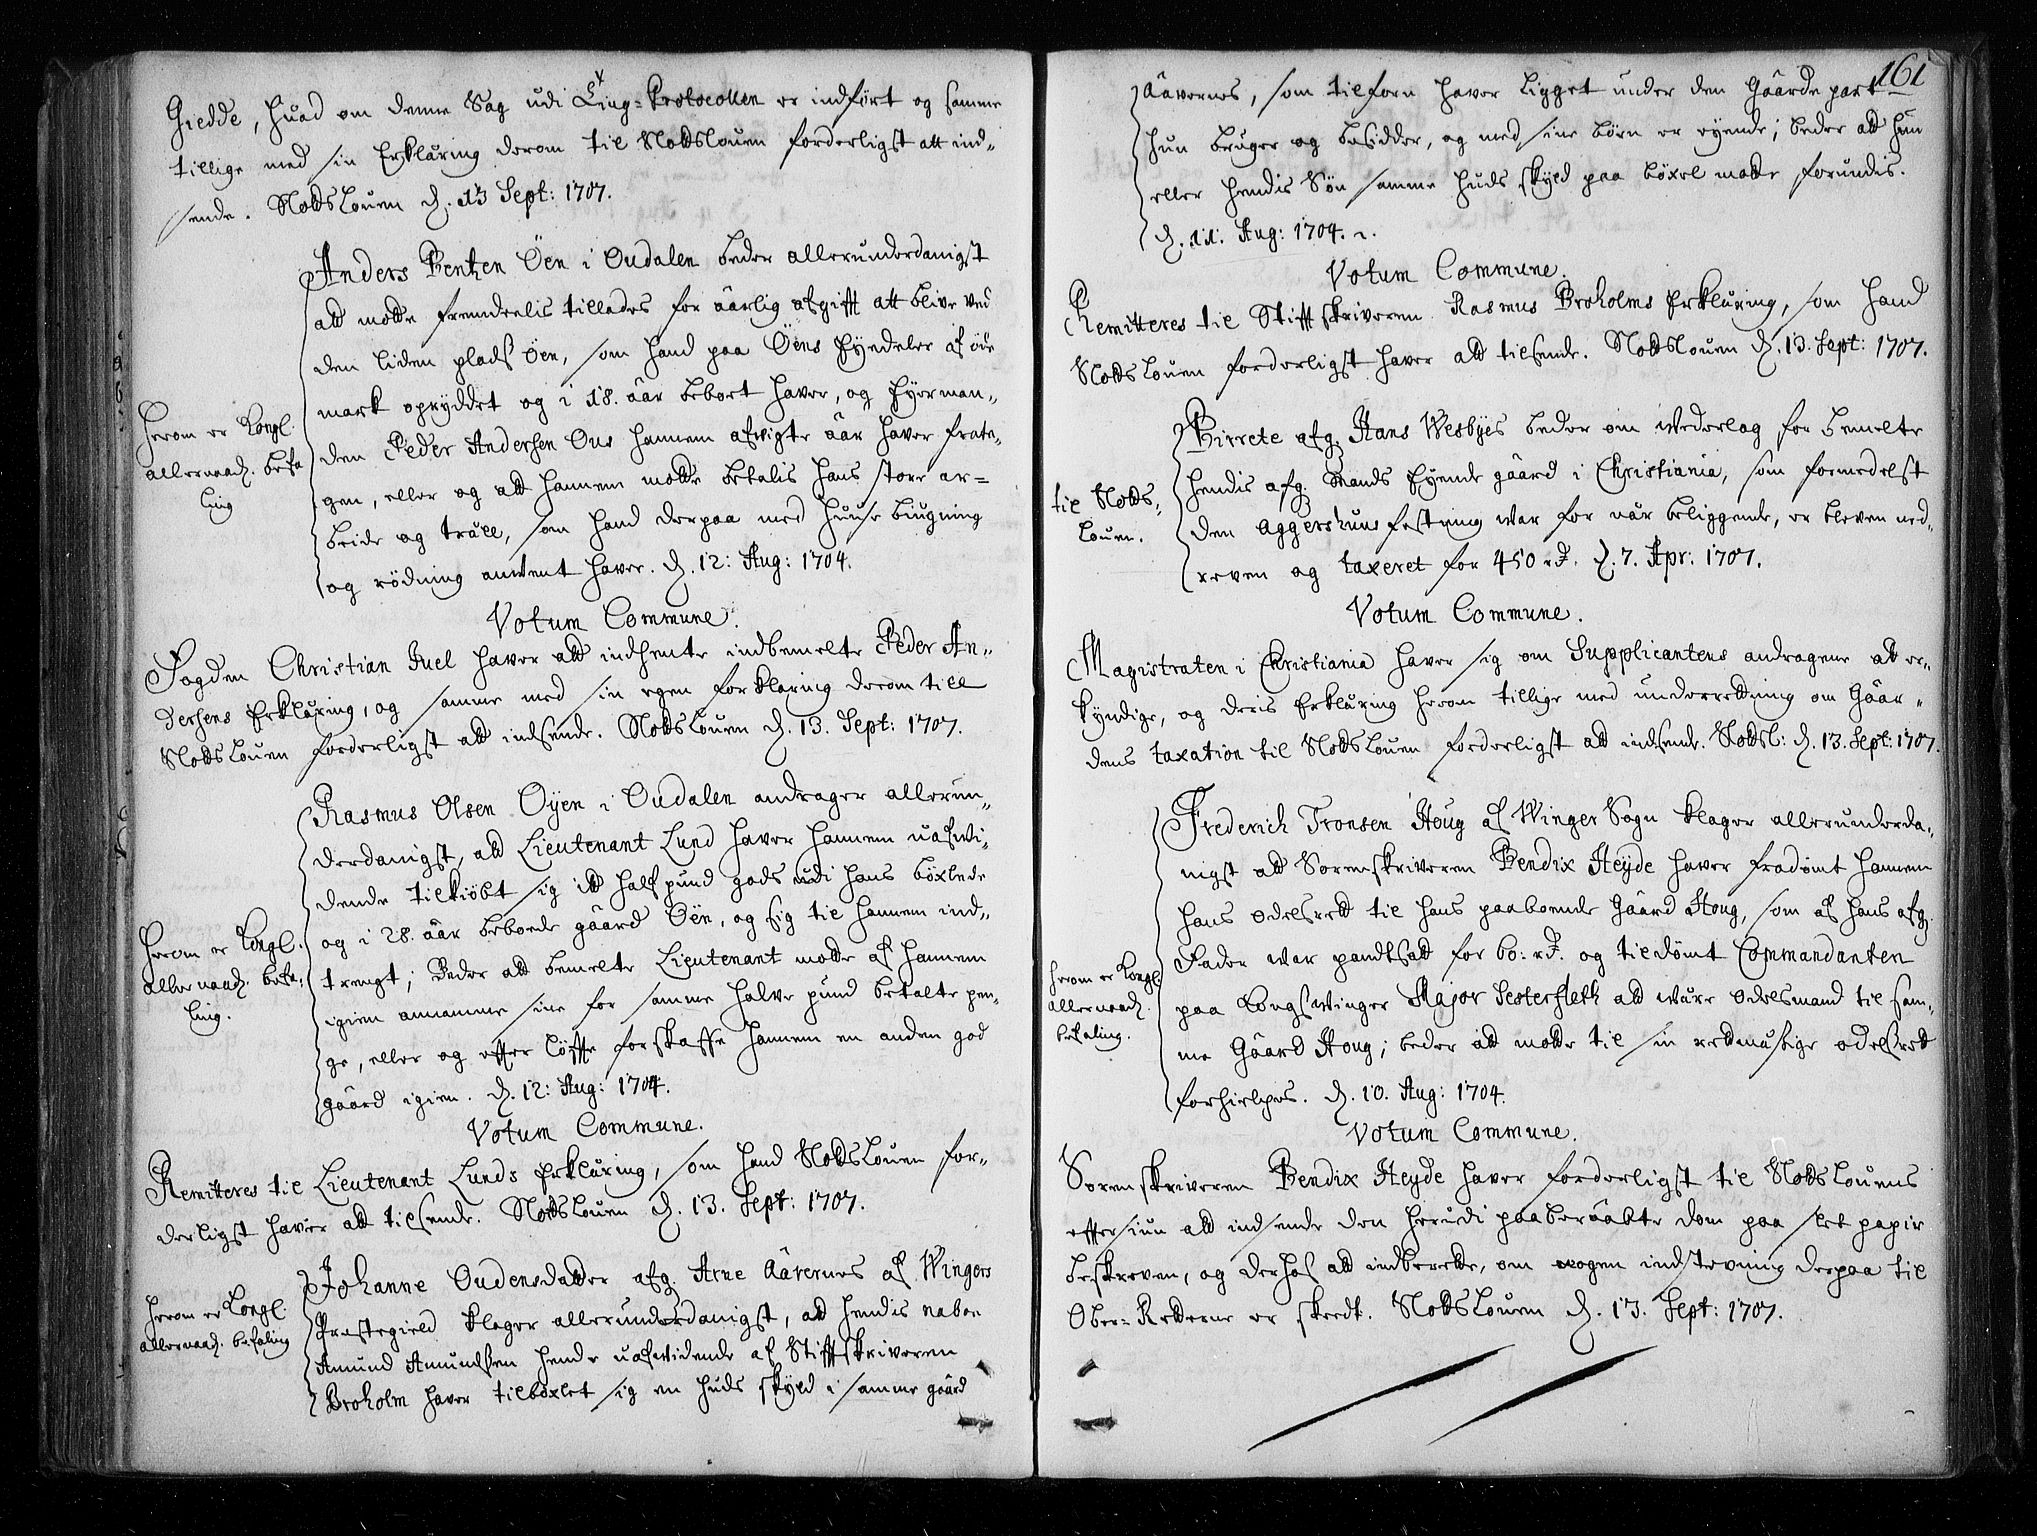 Giedde, huad om denne Sag udi Ting-Protocollen er indført og samme
tillige med sin Erklæring derom til Slotzlouen forderligst att ind-
sende. Slotzlouen d. 13 Sept: 1707.
Anders Bentzen Öen i Oudalen beder allerunderdanigst
att motte fremdeelis tillades for åarlig afgifft att blive ved
den liden pladtz Öen, som hand paa Öens Eyedeler af öde
mark opryddet og i 18. åar beboet hafver, og Eyerman-
den Peder Andersen Ous hannem afvigte åar hafver frata-
gen, eller og att hannem motte betalis hans store ar-
beide og træll, som hand derpaa med huuse biugning
og rödning anvent hafver. d. 12: Aug: 1704.
Herom er Kongl.
allernaad. befa
ling
Votum Commune.
Fogden Christian Juel hafver att indhente indbemelte Peder An-
dersens Erklæring, og samme med sin egen forklaring derom till
Slotzlouen forderligst att indsende. Slotzlouen d. 13. Sept: 1707.
Rasmus Olsen Öyen i Oudalen andrager allerun-
derdanigst, att Lieutenant Lund hafver hannem uafvi-
dende tilkiöbt sig itt half pund gods udi hans böxlede
og i 28. åar beboede gåard Öen, og sig til hannem ind-
trengt; Beder att bemelte Lieutenant motte af hannem
igien annamme sine for samme halve pund betalte pen-
ge, eller og effter löffte forskaffe hannem en anden god
gåard igien. d. 12: Aug: 1704.
Herom er Kongl.
allernaad. befa-
ling.
Votum Commune.
Remitteres til Lieutenant Lunds Erklæring, som hand Slotzlouen for-
derligst hafver att tilsende. Slotzlouen d. 13. Sept: 1707.
Johanne Oudensdatter afg. Arne Aavernes af Wingers
Præstegield klager allerunderdanigst, att hendis naboe
Amund Amundsen hende uafvidende af Stifftskriveren
Broholm hafver tilböxlet sig en huds skyld i samme gaard
Herom er Kongl.
allernaad. befaling
161
Aavernes, som tilforn hafver ligget under den Gåarde part
hun bruger og besidder, og med sine börn er eyende; beder att hun
eller hendis Sön samme huds skyld paa böxel motte forundis.
d. 11. Aug: 1704.
Votum Commune.
Remitteres til Stifftskriveren Rasmus Broholms Erklæring, som hand
Slotzlouen forderligst hafver att tilsende. Slotzlouen d. 13. Sept: 1707.
Birrete afg. Hans Wesbyes beder om Vederlag for bemelte
hendis afg. Mands Eyende gåard i Christiania, som formedelst
den Aggershuus festning var for nær beliggende, er bleven ned-
reven og taxeret for 450 rd. d. 7. Apr: 1707.
til Slotz-
louen.
Votum Commune.
Magistraten i Christiania hafver sig om Supplicantens andragene att er-
kyndige, og deris Erklæring herom tillige med underretning om Gåar-
dens taxation til Slotzlouen forderligst att indsende. Slotzl: d. 13. Sept: 1707.
Frederich Tronsen Houg af Winger Sogn klager allerunderda-
nigst att Sorenskriveren Bendix Heyde hafver fradömt hannem
hans odelsrett til hans paaboende Gåard Houg, som af hans afg.
Fader var pandtsatt for 60: rd. og tildömt Commandanten
paa Kongswinger Major Sesterfleth att være Odelsmand til sam-
me Gåard Houg; beder att motte til sin rettmæssige odelsrett
forhielpes. d. 10. Aug: 1704.
Herom er Kongl
allernaad.
befaling.
Votum Commune.
Sorenskriveren Bendix Heyde hafver forderligst til Slotzlouens
effersiun att indsende den herudi paaberåabte dom paa slet papir
beskreven, og derhos att indberette, om nogen indstevning derpaa til
Ober-Retterne er skeedt. Slotzlouen d. 13. Sept: 1707.